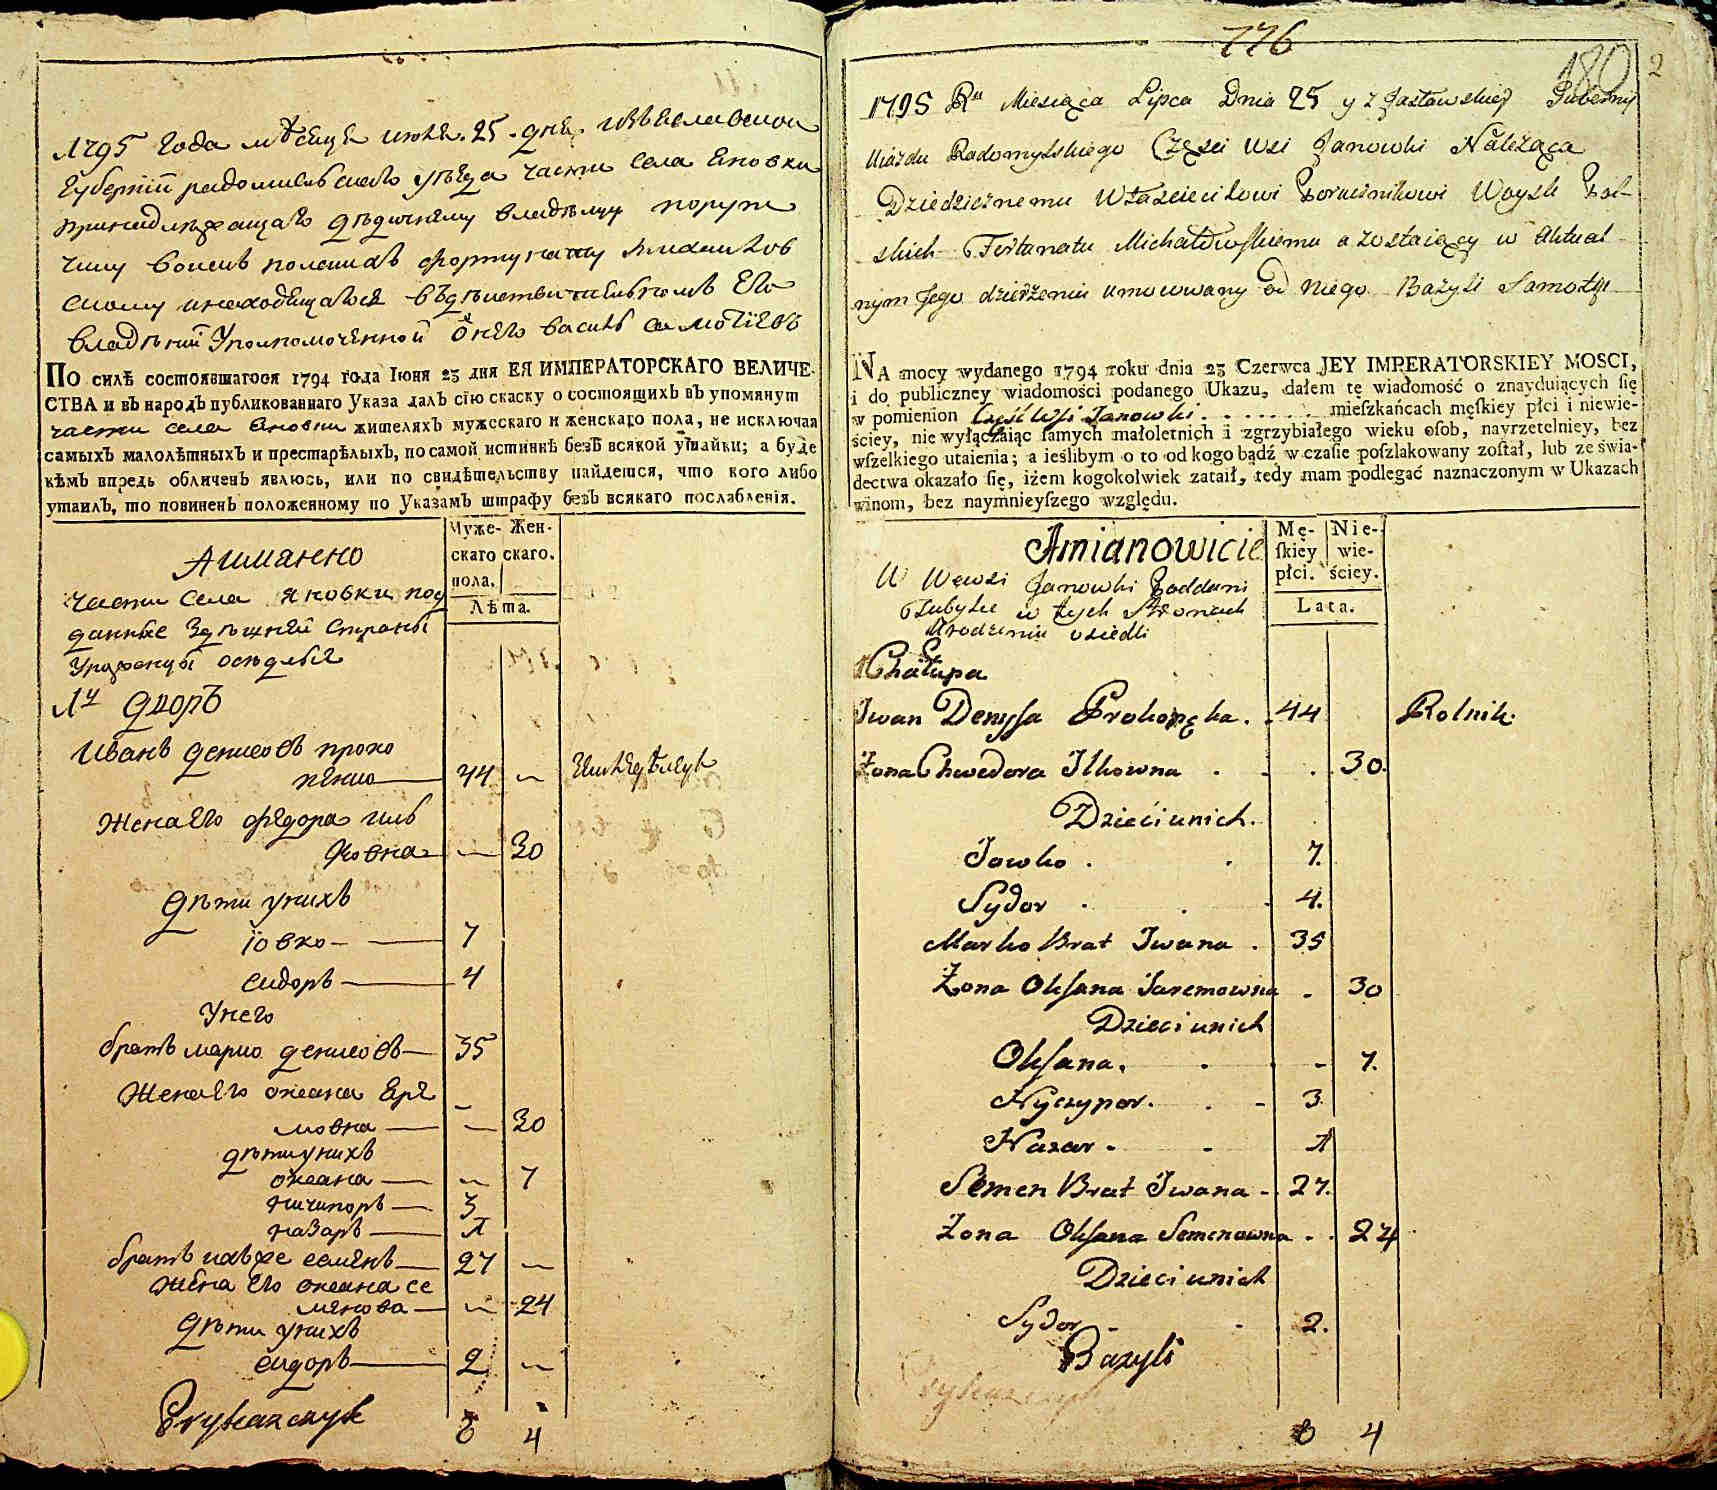 1795 года мѣсяца июля 25 дня Изѣяславской
Губернїи радомисльского уѣзда части села Яновки
принадлежащаго дѣдичнему владѣлцу поруч
чику войскъ полскихъ фортунату михалков
скому инаходящагося въдѣйствительномъ Его
владѣнїй Уполномоченной ѿ него василь самотїевъ
По силѣ состоявшагося 1794 года Іюня 23 дня ЕЯ ИМПЕРАТОРСКАГО ВЕЛИЧЕ-
СТВА и въ народъ публикованнаго Указа далъ сїю скаску о состоящихъ въ упомянут
части села Яновки жителяхъ мужескаго и женскаго пола, не исключая
самыхъ малолѣтныхъ и престарѣлыхъ, по самой истиннѣ безъ всякой утайки; а буде
кѣмъ впредь обличенъ явлюсь, или по свидѣтельству найдется, что кого либо
утаилъ, то повиненъ положенному по Указамъ штрафу безъ всякаго послабленія.
Муже- Жен-
скаго скаго.
пола.
Лѣта.
Аимянно
Части Села Яновки под
данные Здѣшней Страны
Уроженцы осѣдлыя
1й дворъ
Иванъ денисовъ проко
пенко 44
Жена Его федора иль
ковна 30
Дѣти унихъ
Іовко 7
сидоръ 4
Унего
братъ марко денисовъ 35
Жена Его оксана Ере
мовна 30
дѣти унихъ
оксана 7
ничипоръ 3
назаръ 1
братъ ихъ же семенъ 27
Жена Его оксана се
менова 24
Дѣти унихъ
сидоръ 2
8 4
776
180 2
1795 Ru Miesiąca Lipca Dnia 25 y z Jzasławskiej Gubernij
Ujazdu Radomyslskiego Częsci Wsi Janowki Należąca
Dziedzicznemu Własciecielowi Porucznikowi Woysk Pol-
skich Fortunatu Michałowskiemu a zostaiący w Aktual-
nym Jego dzierżeniu umocowany od Niego Bazyli Samotyi
NA mocy wydanego 1794 roku dnia 23 Czerwca JEY IMPERATORSKIEY MOSCI,
i do publiczney wiadomości podanego Ukazu, dałem tę wiadomość o znayduiących ſię
w pomienion Część Wsi Janowki . . . . . . . mieſzkańcach męſkiey płci i niewie-
ściey, nie wyłączaiąc ſamych małoletnich i zgrzybiałego wieku oſob, nayrzetelniey, bez
wſzelkiego utaienia; a ieślibym o to od kogo bądź w czaſie poſzlakowany zoſtał, lub ze świa-
dectwa okazało ſię, iżem kogokolwiek zataił, tedy mam podlegać naznaczonym w Ukazach
winom, bez naymnieyſzego względu.
Mę- Nie-
ſkiey wie-
płci. ściey.
Lata.
Amianowicie
W Wewsi Janowki Poddani
w tych Stronach
Urodzeniu osiedli
Chałupa
Iwan Denysa Prokopęka. 44 Rolnik.
Żona Chwedora Ilkowna . . . 30.
Dzieci unich.
Jowko . . 7.
Sydor . . . 4.
Marko Brat Iwana . 35
Żona Oksana Jaremowna . 30
Dzieci unich
Oksana. . . - 7.
Nyczypor. . - 3.
Nazar . - 1
Semen Brat Iwana - 27.
Żona Oksana Semenowna . . 24
Dzieci unich
Sydor - - 2.
Bazyli
8 4